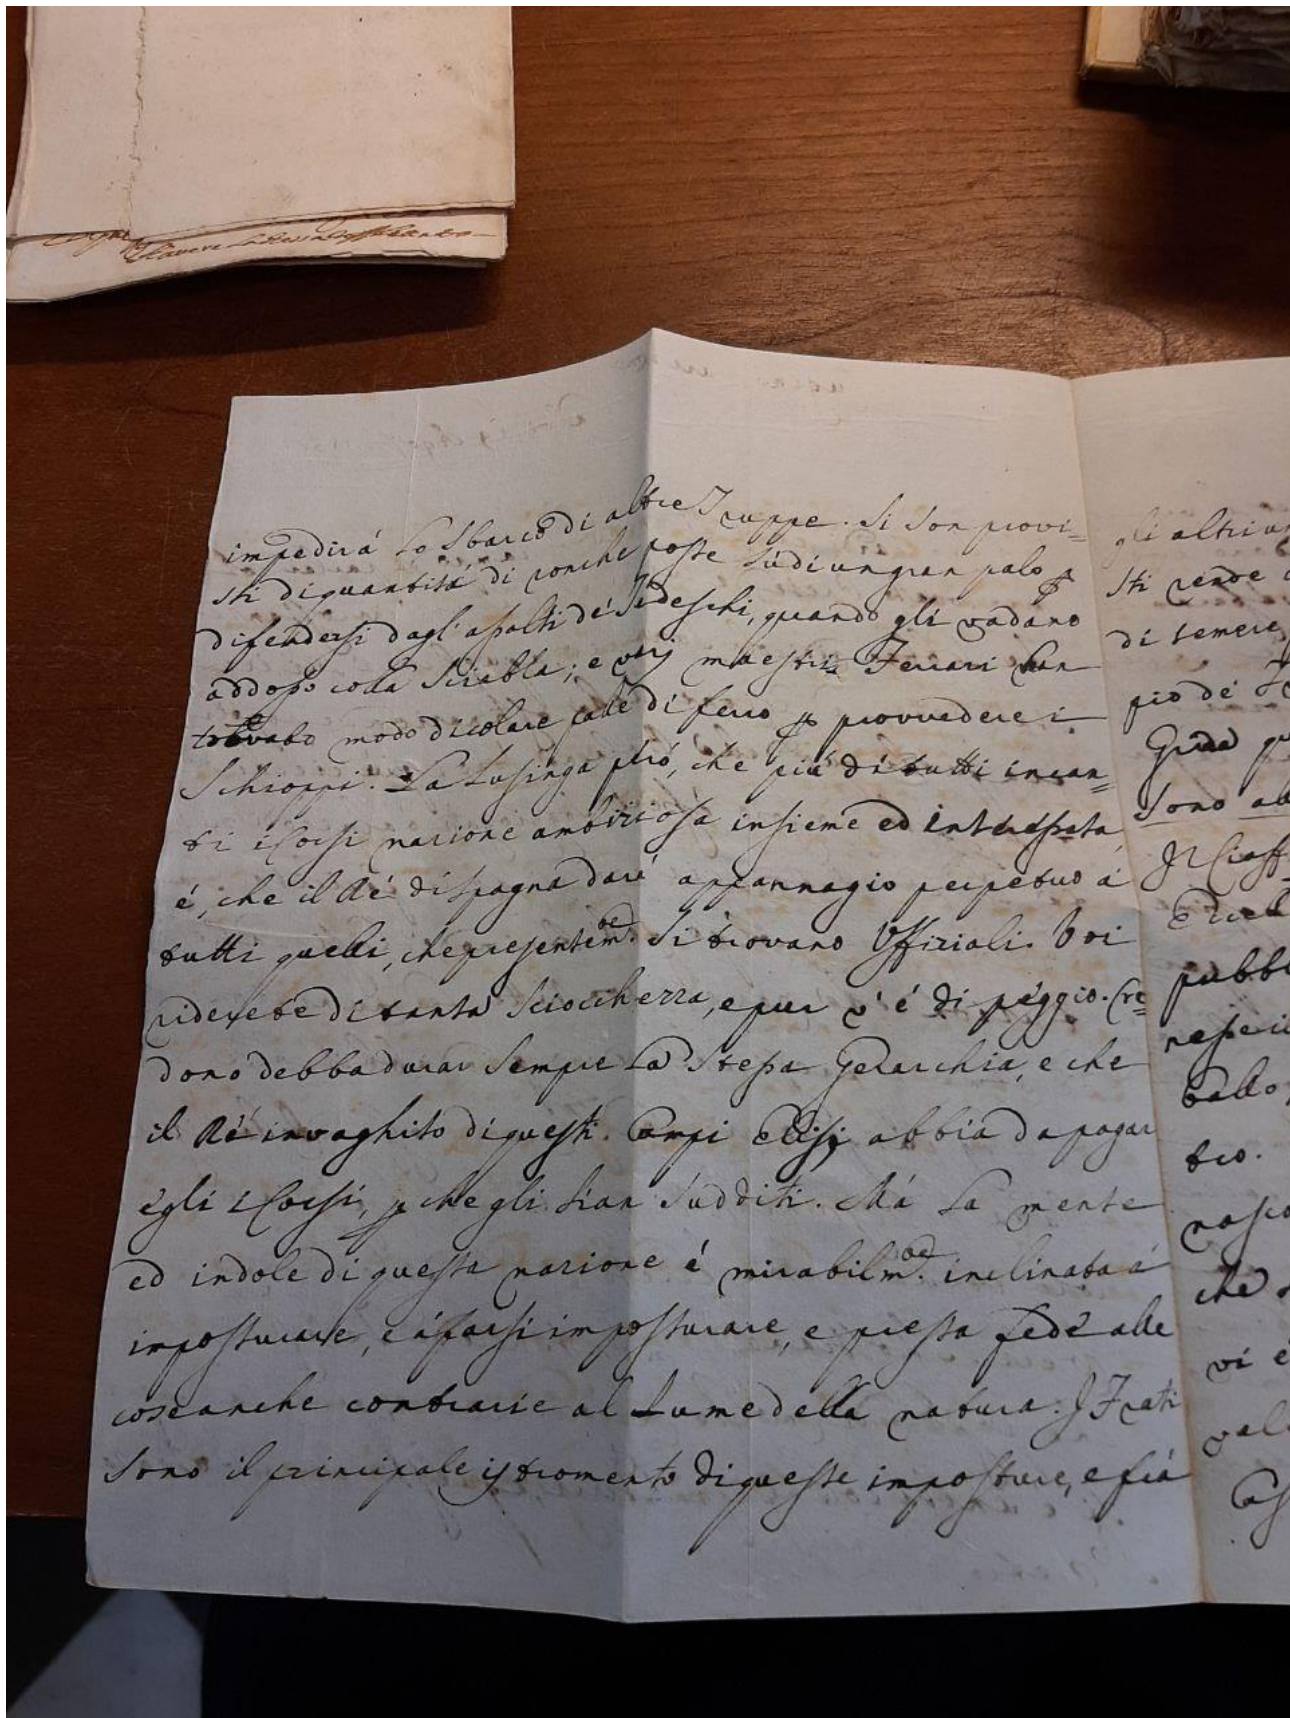 impedirá lo Sbarco di altre Truppe. Si son provi=
sti di quantitá di ronche poste sú di un gran palo p
difendersi dagl'assalti dé Tedeschi, quando gli vadano
addosso colla Sciabla; e varj maestri Ferrari han
trovato modo di colare palle di ferro p provvedere i
Schioppi. La Lusinga però, che piú di tutti incan=
ti i Corsi nazione ambiziosa insieme ed interessata
é, che il Ré di Spagna dará appannagio perpetuo á
tutti quelli, che presentem.te si trovano Uffiziali. Voi
riderete di tanta Sciocchezza, e pur v'é di péggio. Cre=
dono debba durar Sempre la Stessa Gerarchia, e che
il Ré invaghito di questi Campi Elisj abbia da pagar
egli i Corsi, p che gli sian Sudditi. Má la mente
ed indole di questa nazione é mirabilm.te inclinata á
imposturare, e á farsi imposturare, e presta fede alle
cose anche contrarie al Lume della natura. I Frati
Sono il principale istromento di queste imposture, e frá
gli altri
sti rende
di temere
pio dé
Grida
Sono
Il Ciaff
pubbl
che
vi é